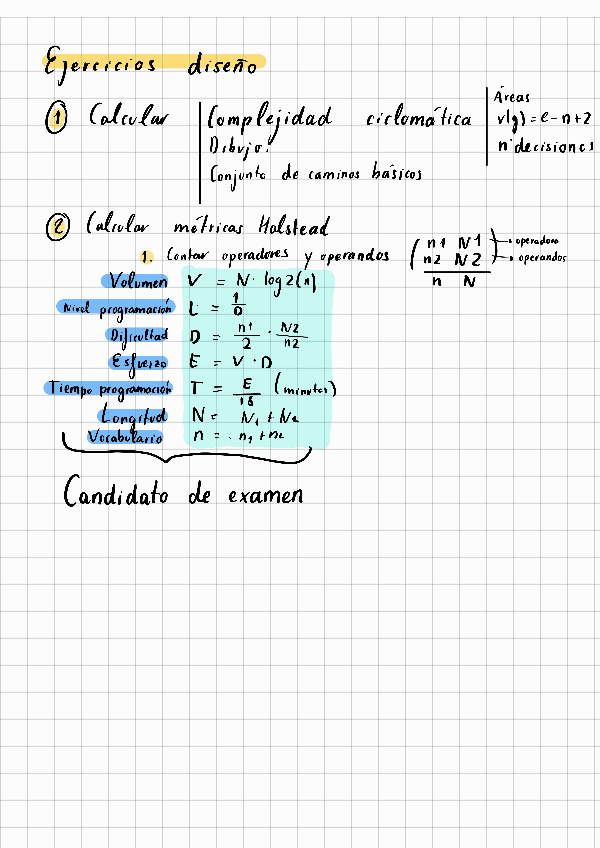 Ejercicios diseño
① Calcular
Complejidad ciclomática
Dibujo.
Conjunto de caminos básicos
Áreas
v(g) = e - n + 2
nº decisiones
② Calcular métricas Halstead
1. Contar operadores y operandos
n1 N1 → operadore
n2 N2 → operandos
n N
Volumen V = N · log2(n)
Nivel programación L = 1/D
Dificultad D = n1/2 · N2/n2
Esfuerzo E = V · D
Tiempo programación T = E/18 (minutos)
Longitud N = N1 + N2
Vocabulario n = n1 + n2
Candidato de examen